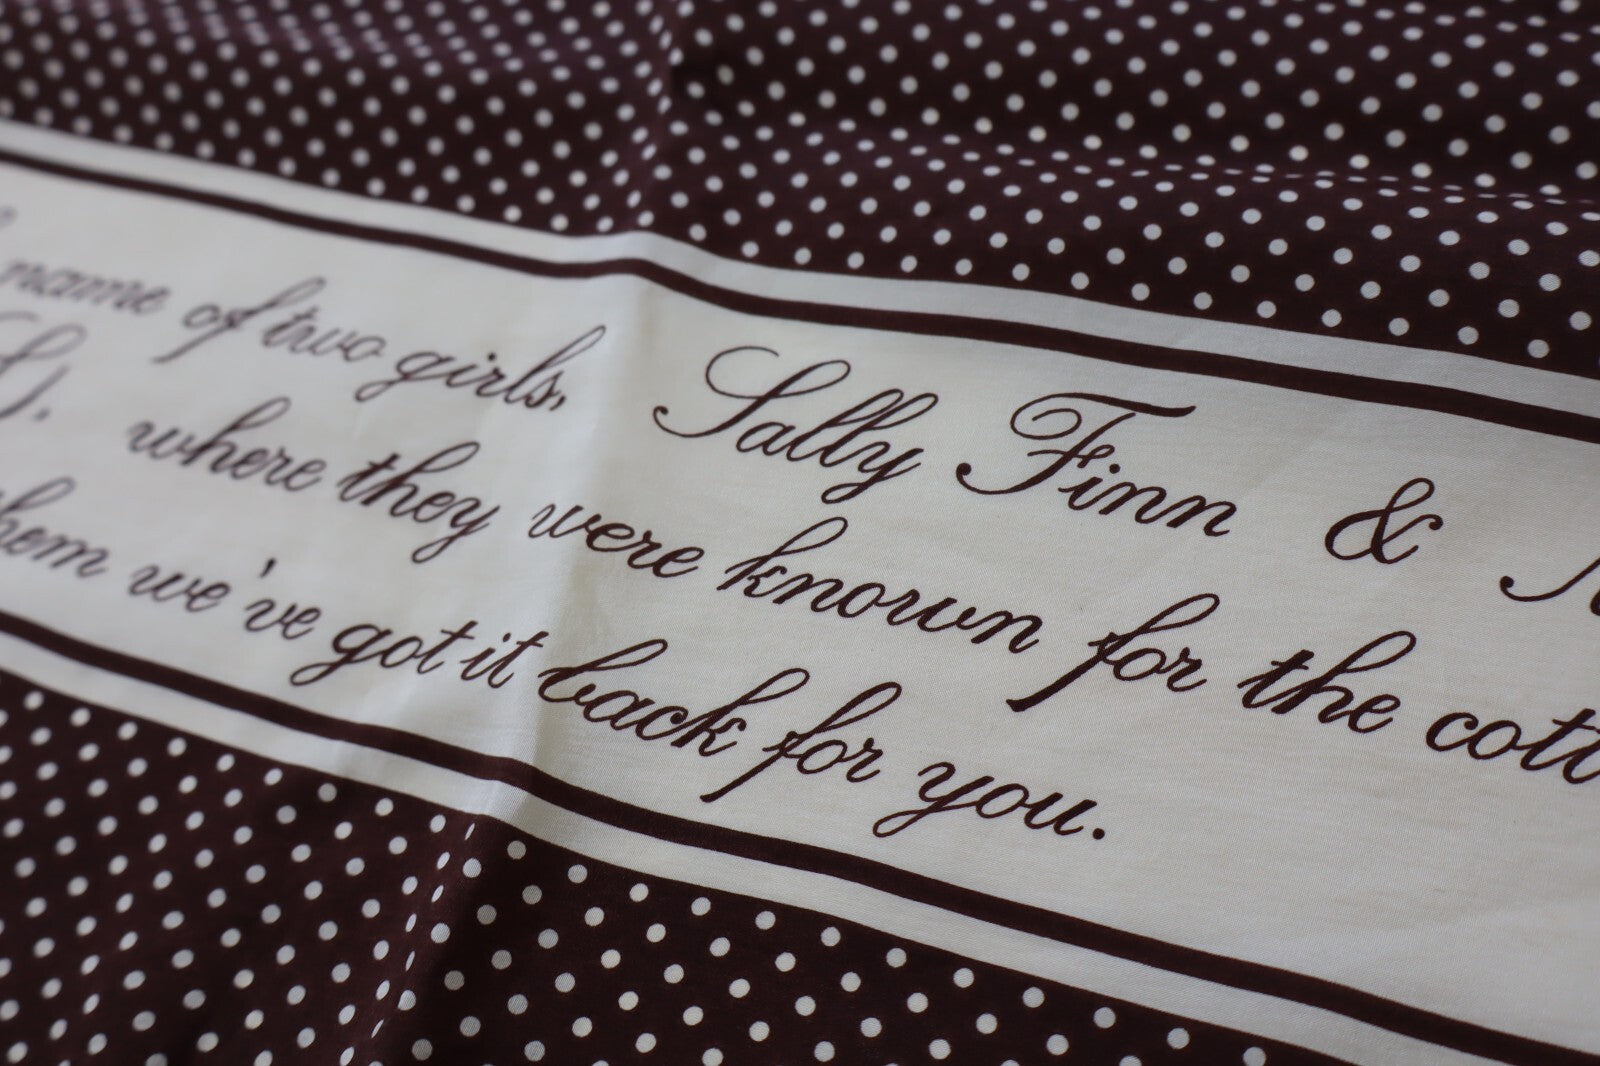 name of two girls, Sally Finn &
where they were known for the
we've got it back for you.